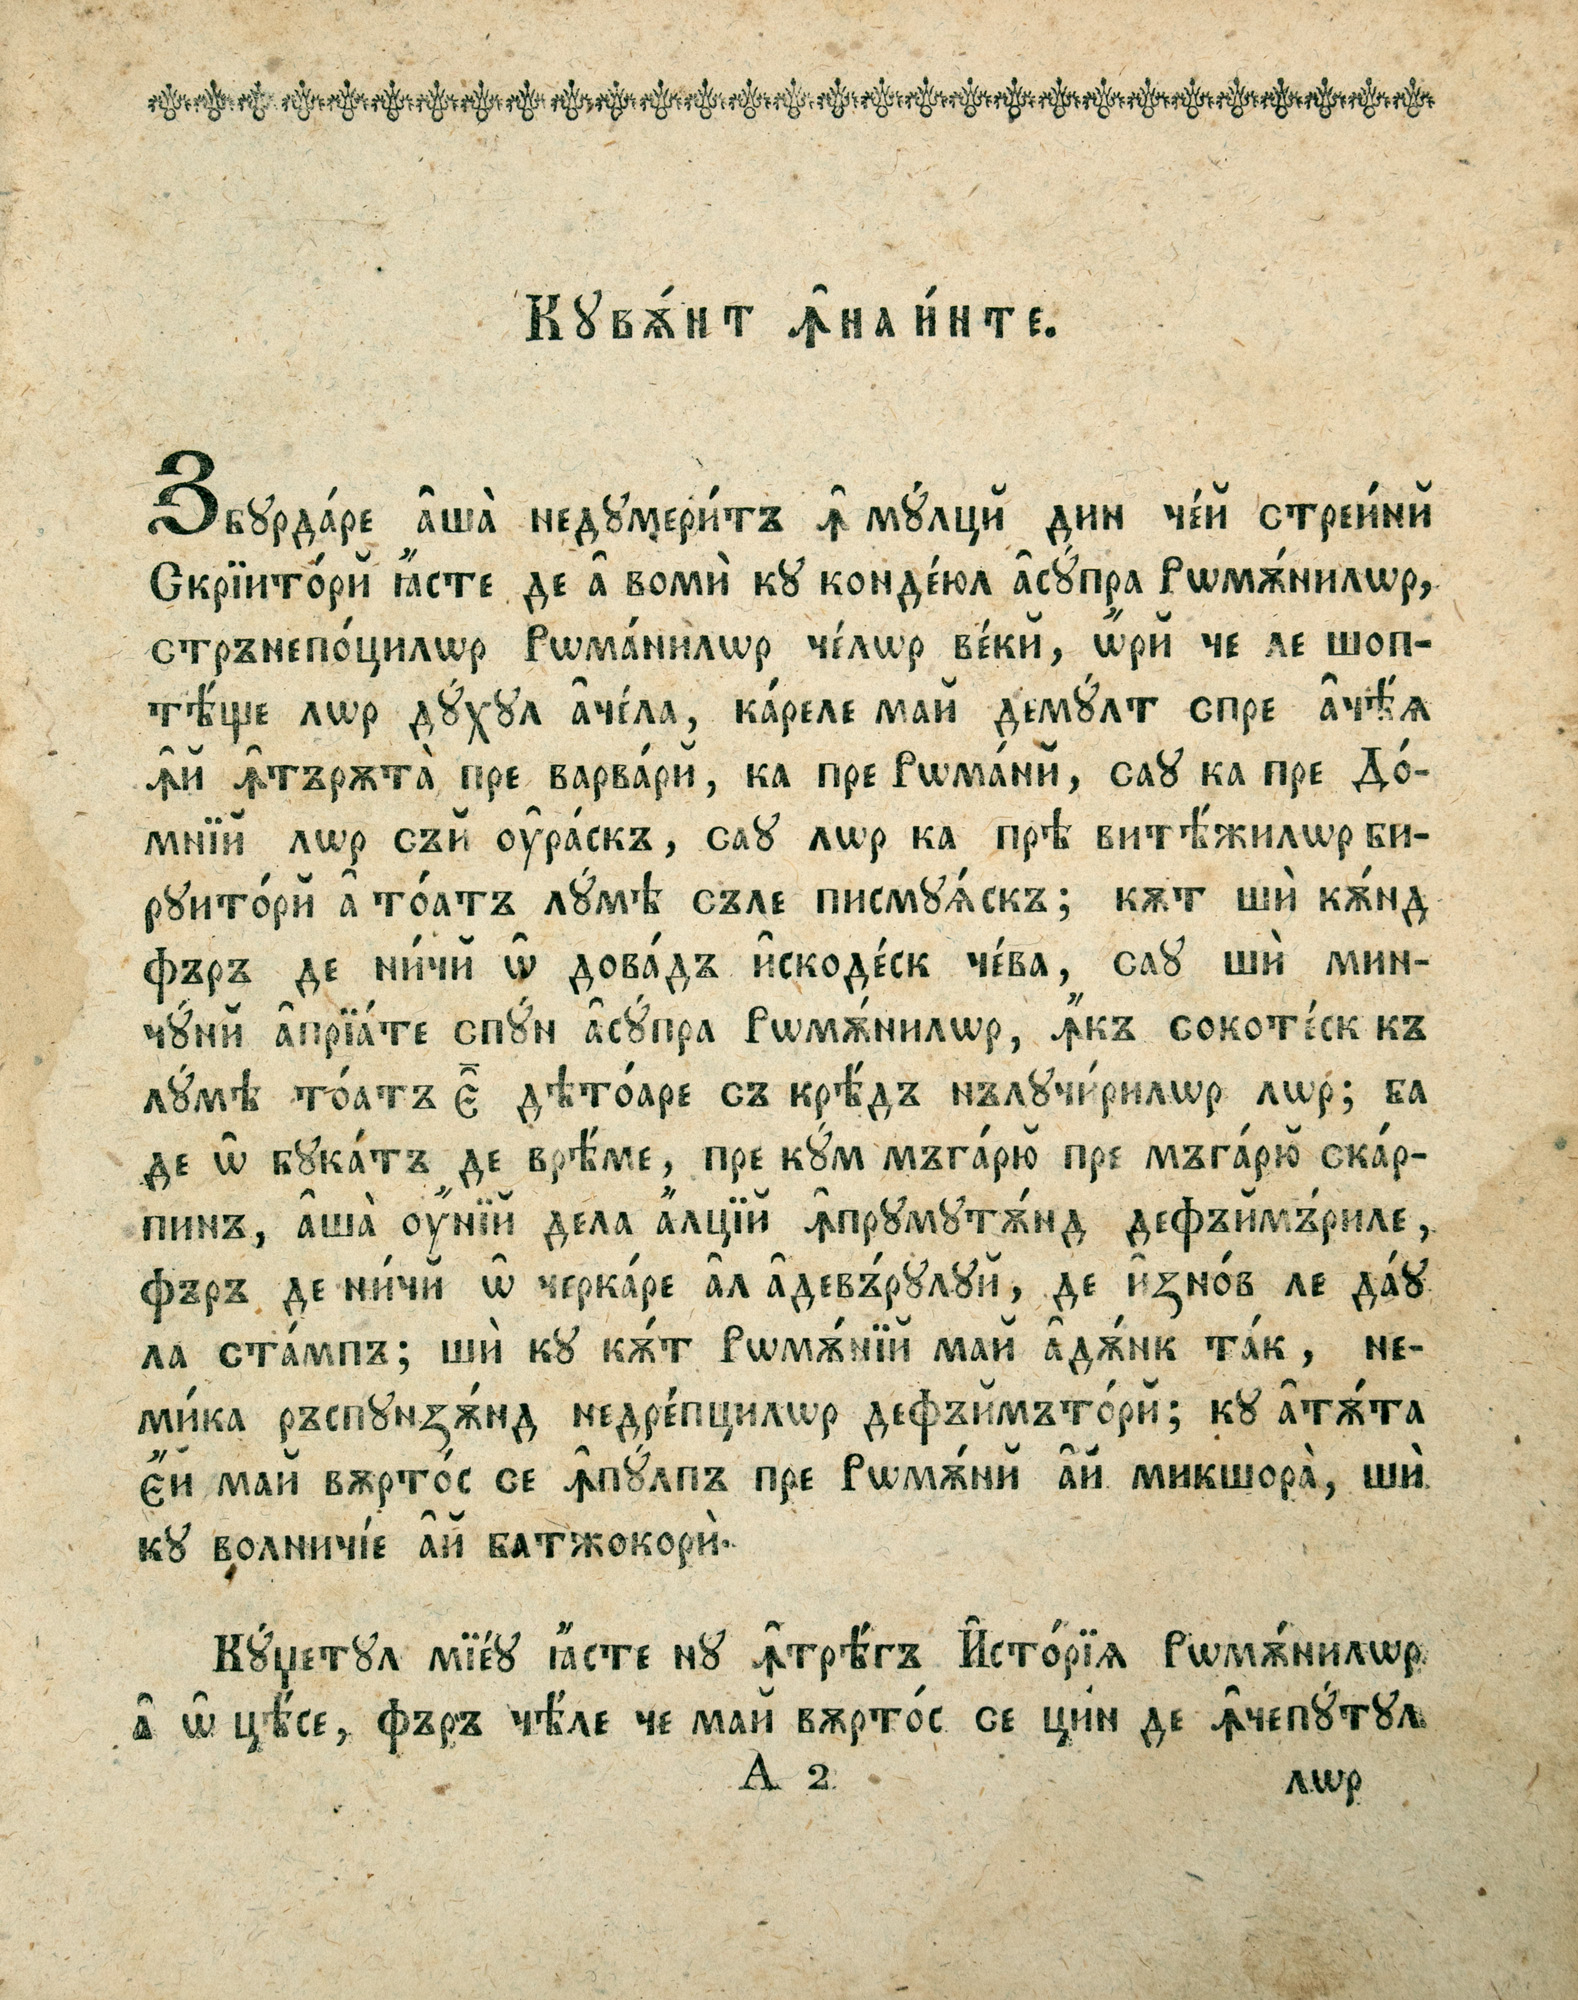 Кꙋвѫ́нт ꙟ̑наи́нте.
Збꙋрда́ре а̑ша̀ недꙋмери́тъ ꙟ̑ мꙋ́лцй дин че́й стреи́нй
Скрїито́рй ꙗ҆́сте де а̑ воми̑ кꙋ конде́юл а̑сꙋ́пра Рѡмѫ́нилѡр,
стрънепо́цилѡр Рѡма́нилѡр че́лѡр ве́кй, ѡ҆́рй че ле шоп-
тѣ́ще лѡр дꙋ́хꙋл а̑че́ла, ка́реле май демꙋ́лт спре а̑чѣ́ѧ
ꙟ̑й ꙟ̑търѫта̀ пре варва́рй, ка пре Рѡма́нй, саꙋ ка пре До́-
мнїй лѡр съй оу̑ра́скъ, саꙋ лѡр ка прѣ витѣ́жилѡр би-
рꙋито́рй а̑ то́атъ лꙋ́мѣ съле писмꙋѧ́скъ; кѫт шѝ кѫ́нд
фъръ де ни́чй ѡ̑ дова́дъ и̑скоде́ск че́ва, саꙋ шѝ мин-
чꙋ́нй а̑прїа́те спꙋ́н а̑сꙋ́пра Рѡмѫ́нилѡр, ꙟ҆́къ сокоте́ск къ
лꙋ́мѣ то́атъ є̑ дѣто́аре съ крѣ́дъ нълꙋчи́рилѡр лѡр; ба
де ѡ̑ бꙋка́тъ де врѣ́ме, пре кꙋ́м мъга́рю̆ пре мъга́рю̆ ска́р-
пинъ, а̑ша̀ оу҆́нїй дела а҆́лцїй ꙟ̑прꙋмꙋтѫ́нд дефъймъ́риле,
фъръ де ни́чй ѡ̑ черка́ре а̑л а̑девъ́рꙋлꙋй, де и̑зно́в ле да́ꙋ
ла ста́мпъ; шѝ кꙋ кѫ́т Рѡмѫ́нїй май а̑дѫ́нк та́к, не-
ми́ка ръспꙋнзѫ́нд недре́пцилѡр дефъймъто́рй; кꙋ а̑тѫ́та
є҆́й май вѫрто́с се ꙟ̑пꙋ́лпъ пре Рѡмѫ́нй а̑й микшора̀, шѝ
кꙋ волничі́е а̑й батжокорѝ.
Кꙋ́џетꙋл мїе́ꙋ ꙗ҆́сте нꙋ ꙟ̑трѣ́гъ И̑сто́рїѧ Рѡмѫ́нилѡр
а̑ ѡ̑ цѣ́се, фъръ чѣ́ле че май вѫрто́с се ци́н де ꙟ̑чепꙋ́тꙋл
А 2 лѡр